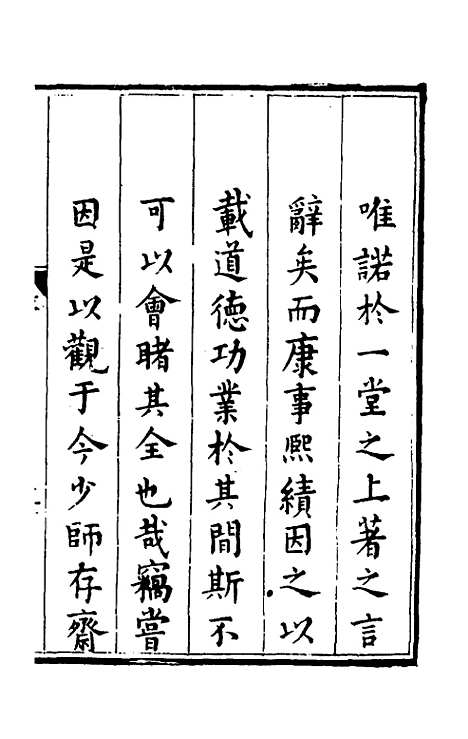 唯諾於一堂之上著之言
辭矣而康事熙績因之以
載道德功業於其間斯不
可以會睹其全也哉竊嘗
因是以觀于今少師存齋